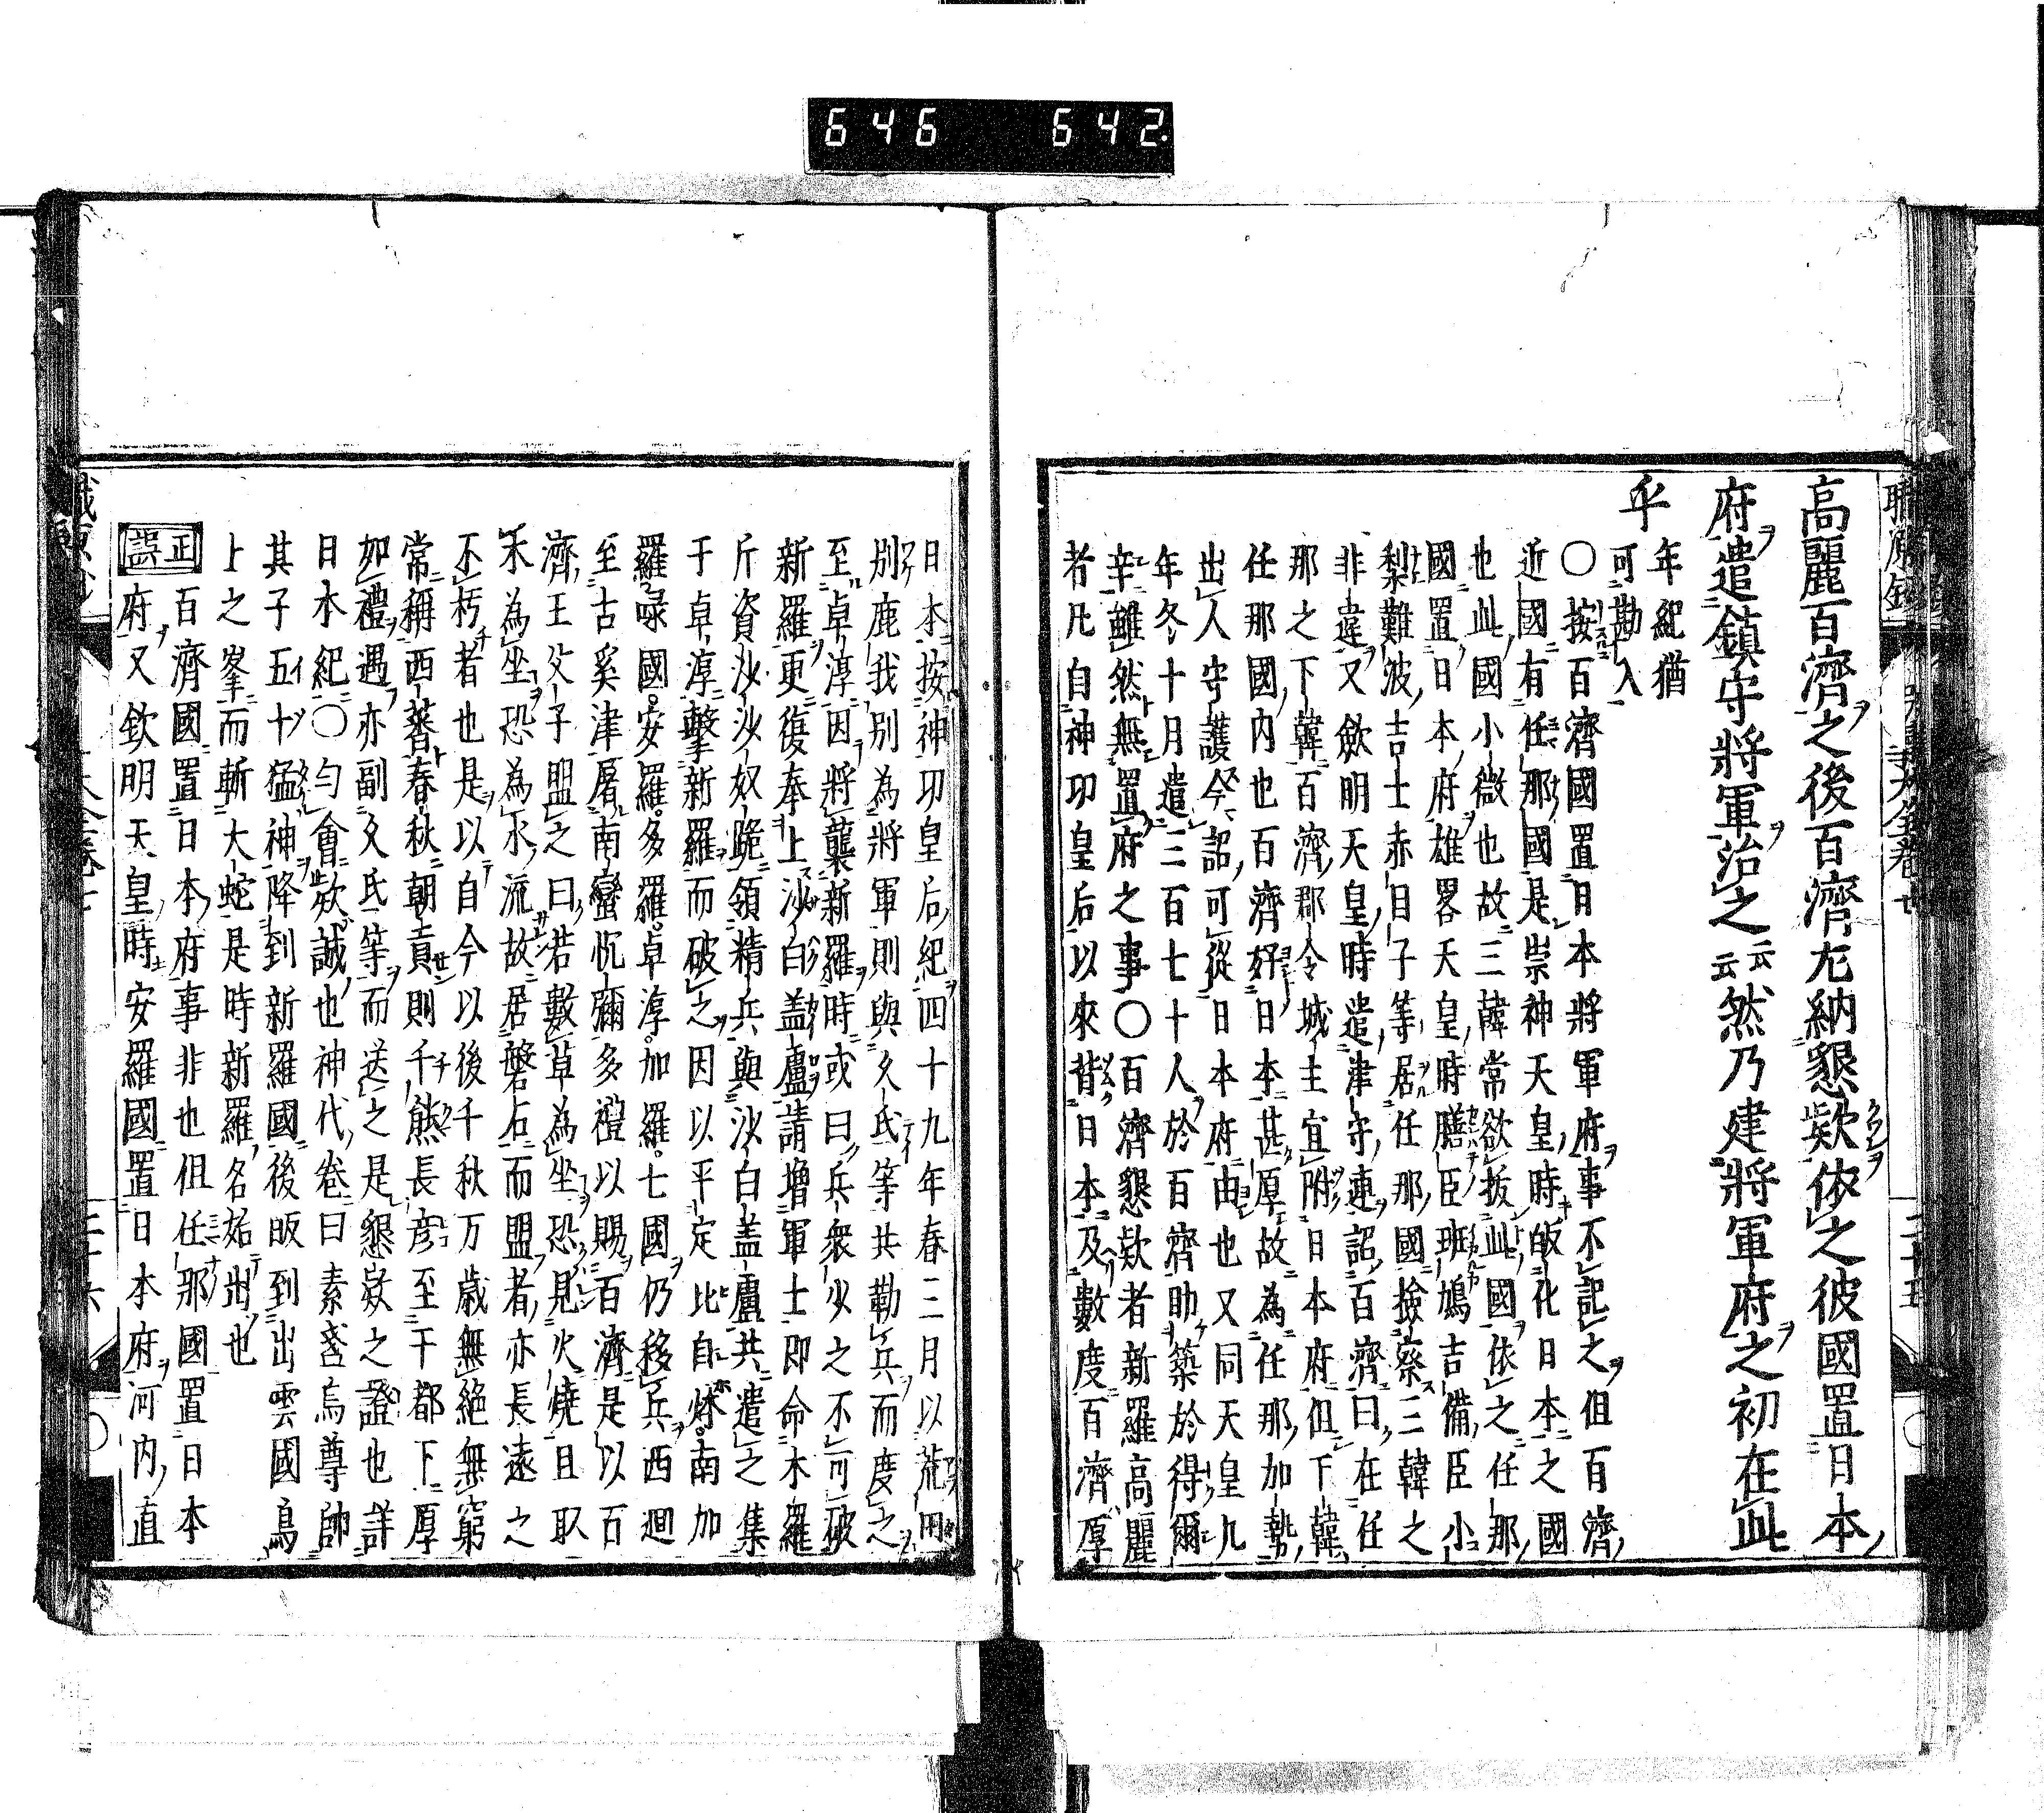 646 642
高麗百濟之後百濟尤納懇欵依之彼國置日本
府遣鎮守將軍治之云云然乃建將軍府之初在此
年
年紀猶
可勘入
○按百濟國置日本將軍府事不記之但百濟
近國有任那國是崇神天皇時皈化日本之國
也此國小微也故三韓常欲拔此國依之任那
國置日本府雄畧天皇時膳臣班鳩吉備臣小
梨難波吉士赤日子等居任那國撿察三韓之
非違又欽明天皇時遣津守連詔百濟曰在任
那之下韓百濟郡令城主宜附日本府但下韓
任那國内也百濟好日本甚厚故為任那加勢
出人守護今詔可從日本府由也又同天皇九
年冬十月遣三百七十人於百濟助築於得爾
辛雖然無置府之事○百濟懇欵者新羅高麗
者凡自神功皇后以來背日本及數度百濟厚
日本按神功皇后紀四十九年春三月以荒田
別鹿我別為將軍則與久氏等共勒兵而度之
至卓淳因將襲新羅時或曰兵衆少之不可破
新羅更復奉上沙白盖盧請增軍士即命木羅
斤資沙沙奴跪領精兵與沙白盖盧共遣之集
于卓淳擊新羅而破之因以平定比自㶱南加
羅㖨國安羅多羅卓淳加羅七國仍移兵西廻
至古奚津屠南蠻忱彌多禮以賜百濟是以百
濟王父子盟之曰若敷草為坐恐見火燒且取
木為坐恐為水流故居磐石而盟者亦長遠之
不朽者也是以自今以後千秋万歳無絶無窮
常稱西蕃春秋朝貢則千熊長彦至于都下厚
如禮遇亦副久氏等而送之是懇欵之證也詳
日本紀○勻會欵誠也神代卷曰素盞烏尊帥
其子五十猛神降到新羅國後皈到出雲國鳥
上之峯而斬大蛇是時新羅名始出也
正誤 百濟國置日本府事非也但任那國置日本
府又欽明天皇時安羅國置日本府河内直